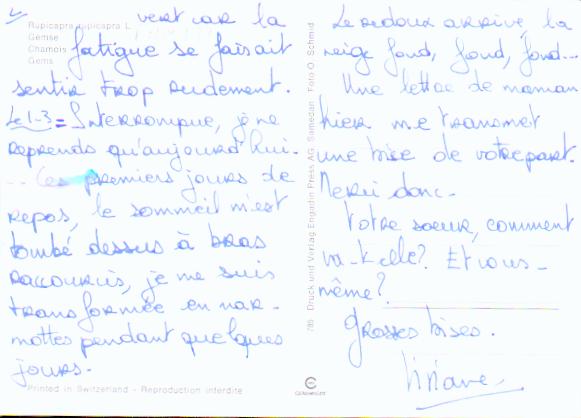 Rupicapra rupicapra L.
Gemse
Chamois
Gems
vert car la
fatigue se faisait
sentir trop rudement.
Le 1-3 = Interrompue, je ne
reprends qu'aujourd'hui.
... Ces premiers jours de
repos, le sommeil m'est
tombé dessus à bras
raccourcis, je me suis
transformée en mar-
mottes pendant quelques
jours.
Printed in Switzerland - Reproduction interdite
785 Druck und Verlag Engadin Press AG, Samedan Foto O. Schmid
Le redoux arrive, la
neige fond, fond, fond...
Une lettre de maman
hier me transmet
une bise de votre part.
Merci donc.
Votre soeur, comment
va-t-elle? Et vous-
même?
Grosses bises.